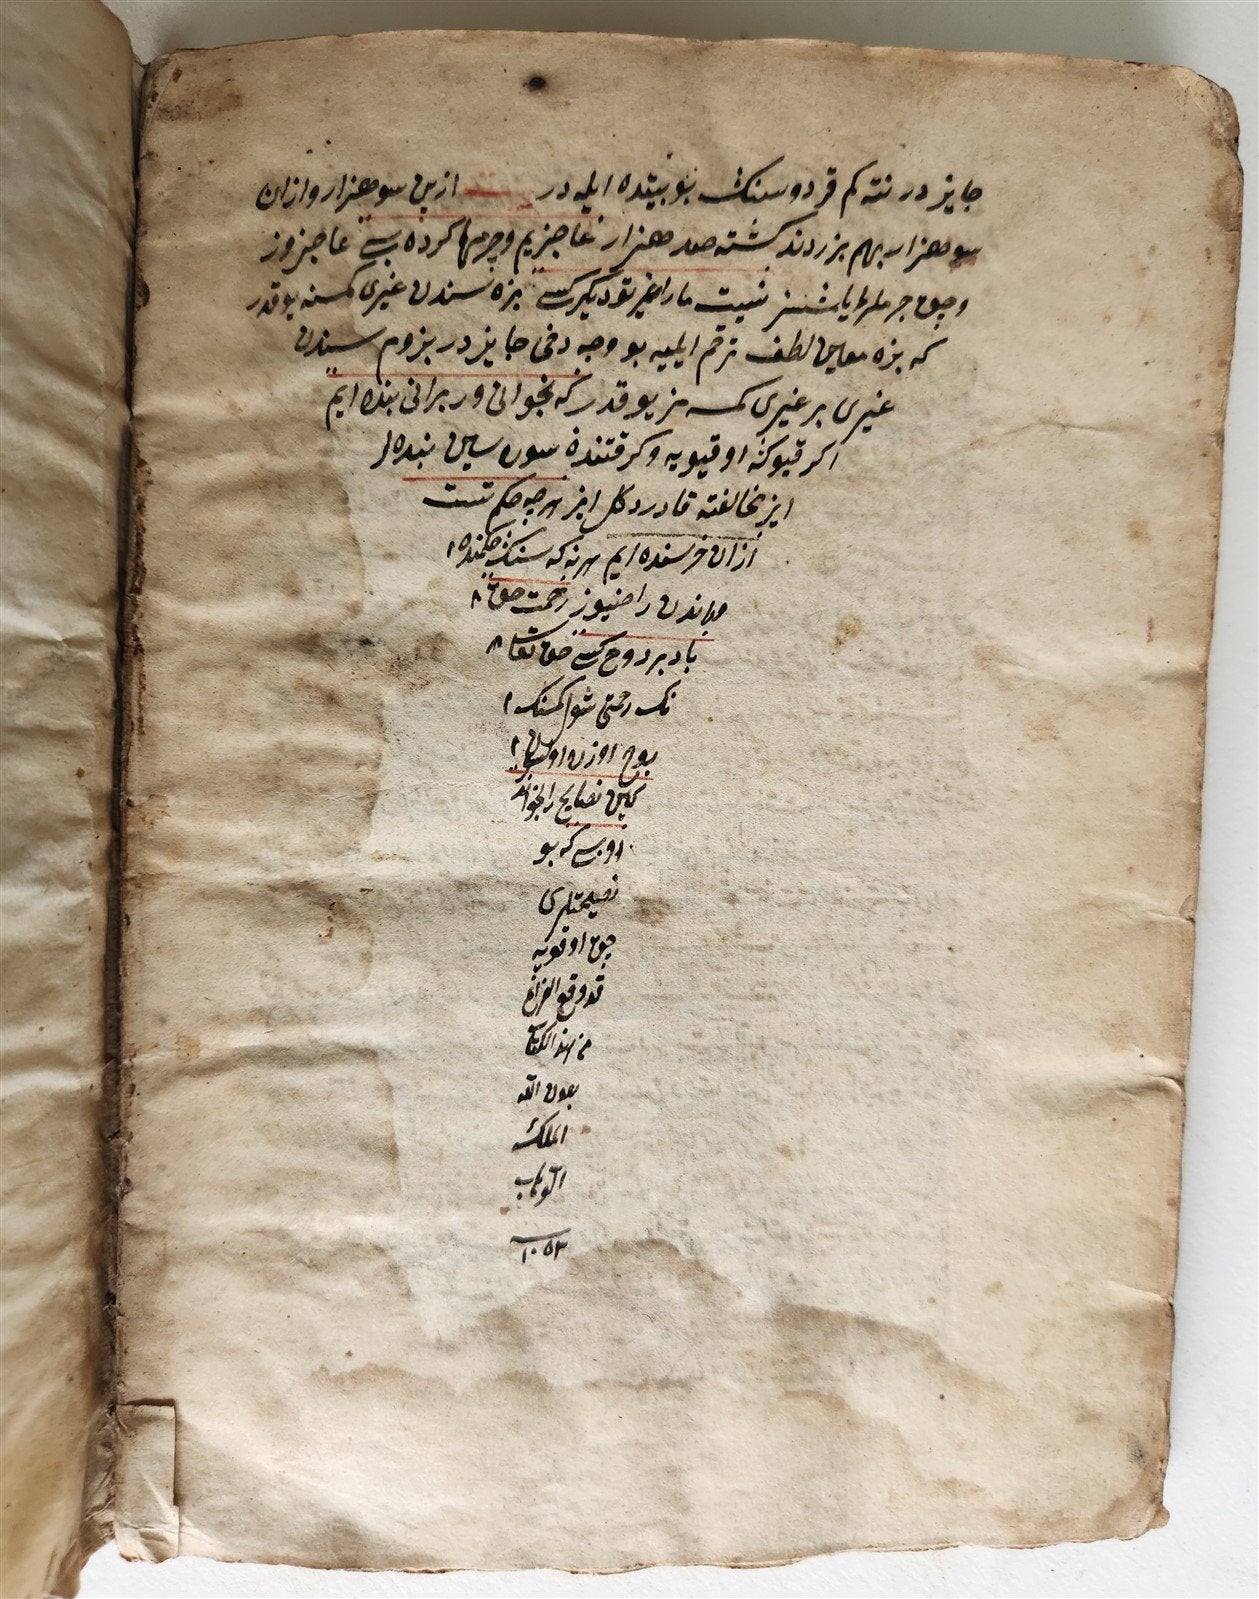 جایز در نته کم قردوسنک بو بیتده ایله در ازین سو هزار و ازان
سو هزار بهم بزردند کشته صد هزار عاجزیم و جرمها کرده بسی عاجزوز
و چوق جرملر ایلمشز نیست ما را غیر تو دیگر کسی بزه سندن غیری کمسنه یوقدر
که بزه معاین لطف ترحم ایلیه بو وجه دخی جایز در بزوم سندن
غیری بر غیری کمسه مز یوقدر که بخوانی ور برانی بنده ایم
اکر قپوکنه اوقیویه و کر قتنده سورسین بنده
ایز مخالفته قادر دکل ایز هر چه حکم تست
ازان خرسنده ایم هر نه که سنک حکمنده
راضیوز رحمت حق
باد بر روح کسی حق تعالی
نک رحمتی شول کمسنک
روحی اوزرنه اولسون
کین نصایح را بخواند
او بسی که بو
نصیحتلری
چوق اوقویه
قد وقع الفراغ
من هذا الکتاب
بعون الله
الملک
الوهاب
۱۰۵۳